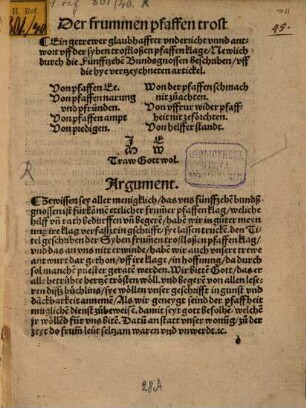 H. Ref.
801/40.
H. ref. 801/40. *
45.
Der frummen pfaffen trost
Ein getrewer glaubhaffter vnderricht vnnd ant-
wort vff der syben trostloßen pfaffen klage/Newlich
durch die Fünffzehē Bundsgnossen beschriben/vff
die hye verzeychneten artickel.
Von pfaffen Ee.
Von pfaffen narung
vnd pfründen.
Von pfaffen ampt
Von predigen.
Von der pfaffen schmach
nit zůachten.
Von vffrur wider pfaff-
heit nit zeförchten.
Von helffer standt.
J E
M W
Traw Gott wol.
BIBLIOTHECA
REGIA
MONACENSIS
Argument.
Gewissen sey aller menigklich/das vns fünffzehē bundß-
gnossen ist fürkomē etlicher frumēr pfaffen klag/weliche
hilff vn̄ rath bedürffen vn̄ begerē/habē wir in gůter mey-
nung ire klag verfasst in geschrifft/sye lassen truckē. den Ti-
tel geschriben der Syben frumen trostloßen pfaffen klag/
vnd das an vns nitt erwinde/habē wir auch vnsere trewe
antwurt dar gethon/vff ire klag/in hoffnung/da durch
sol manchē priester geratē werden. Wir bittē Gott/das er
alle betrübte hertzē trösten wöll. vnd begerē von allen lese-
ren dißs bůchlins/sye wöllen vnser geschrifft in gunst vnd
danckbarkeit annemē/Als wir geneygt seind der pfaffheit
mügliche dienst zůbeweisē. damit seyt gott befolhē/welchē
jr wöllēd für vns bitē. Datū an statt vnser wonūg/zů der
zeyt do frum̄ leüt seltzam waren vnd vnwerdt. ꝛc.
28A